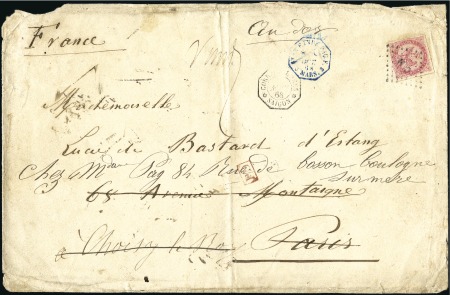 France
Au dos
Mademoiselle
Lucie de Bastard d'Estang
Chez Mme Pag 84 Rue de Bosson Boulogne
sur mer
68 Avenue Montaigne
à Choisy le Roy Paris
SAIGON